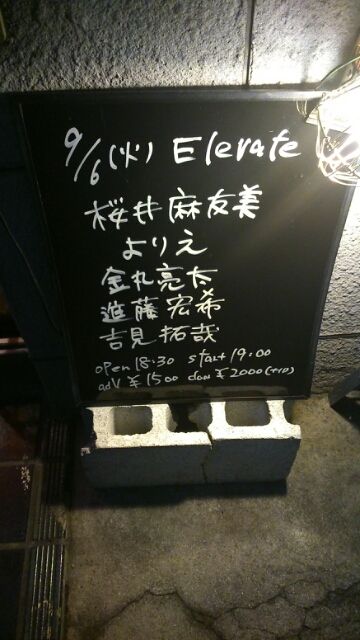 9/6(火) Elevate
桜井麻友美
よりえ
金丸亮太
進藤宏希
吉見拓哉
open 18:30 start 19:00
adv ¥1500 door ¥2000(+1D)